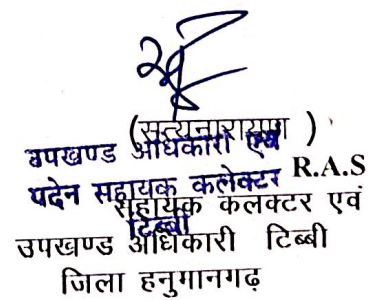 (सत्यनारायण )
उपखण्ड अधिकारी एवं
पदेन सहायक कलेक्टर R.A.S
सहायक कलक्टर एवं
टिब्बी
उपखण्ड अधिकारी टिब्बी
जिला हनुमानगढ़